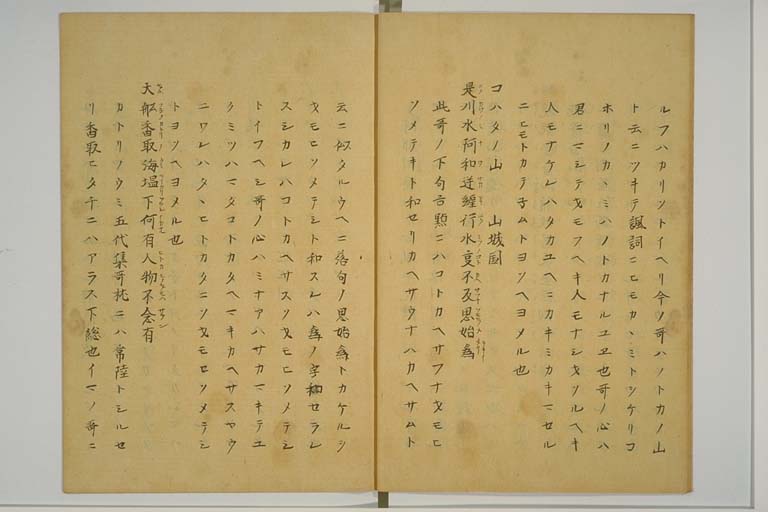 ルフハカリソトイヘリ今ノ哥ハノトカノ山
ト云ニツキテ諷詞ニヒモカヽミトシケリコ
ホリノカヽミハノトカナルユヱ也哥ノ心ハ
君ニコシテヲモフヘキ人モナシヲソルヘキ
人モナケレハタカユヘニカキミカキコセル
ニヒモトカテ子ムトヨソヘヨメル也
コハタノ山 山城國
是川水阿和逆纏行水事不反思始為
此哥ノ下句古點ニハコトカヘサフナヲモヒ
ソメテキト和セリカヘサウナハカヘサムト
云ニ似タルウヘニ落句ノ思始為トカケルシ
ヲモヒソメテシト和スレハ為ノ字和セラレ
スシカレハコトカヘサスソヲモヒソメテシ
トイフヘシ哥ノ心ハミナアハサカマキテユ
クミツハマタコトカタヘマキカヘサスヤウ
ニワレハタヽヒトカタニソヲモヒソメテシ
トヨソヘヨメル也
大船香取海慍下何有人物不念有
カトリノウミ五代集哥枕ニハ常陸トシルセ
リ香取ヒタチニハアラス下総也イマノ哥ニ